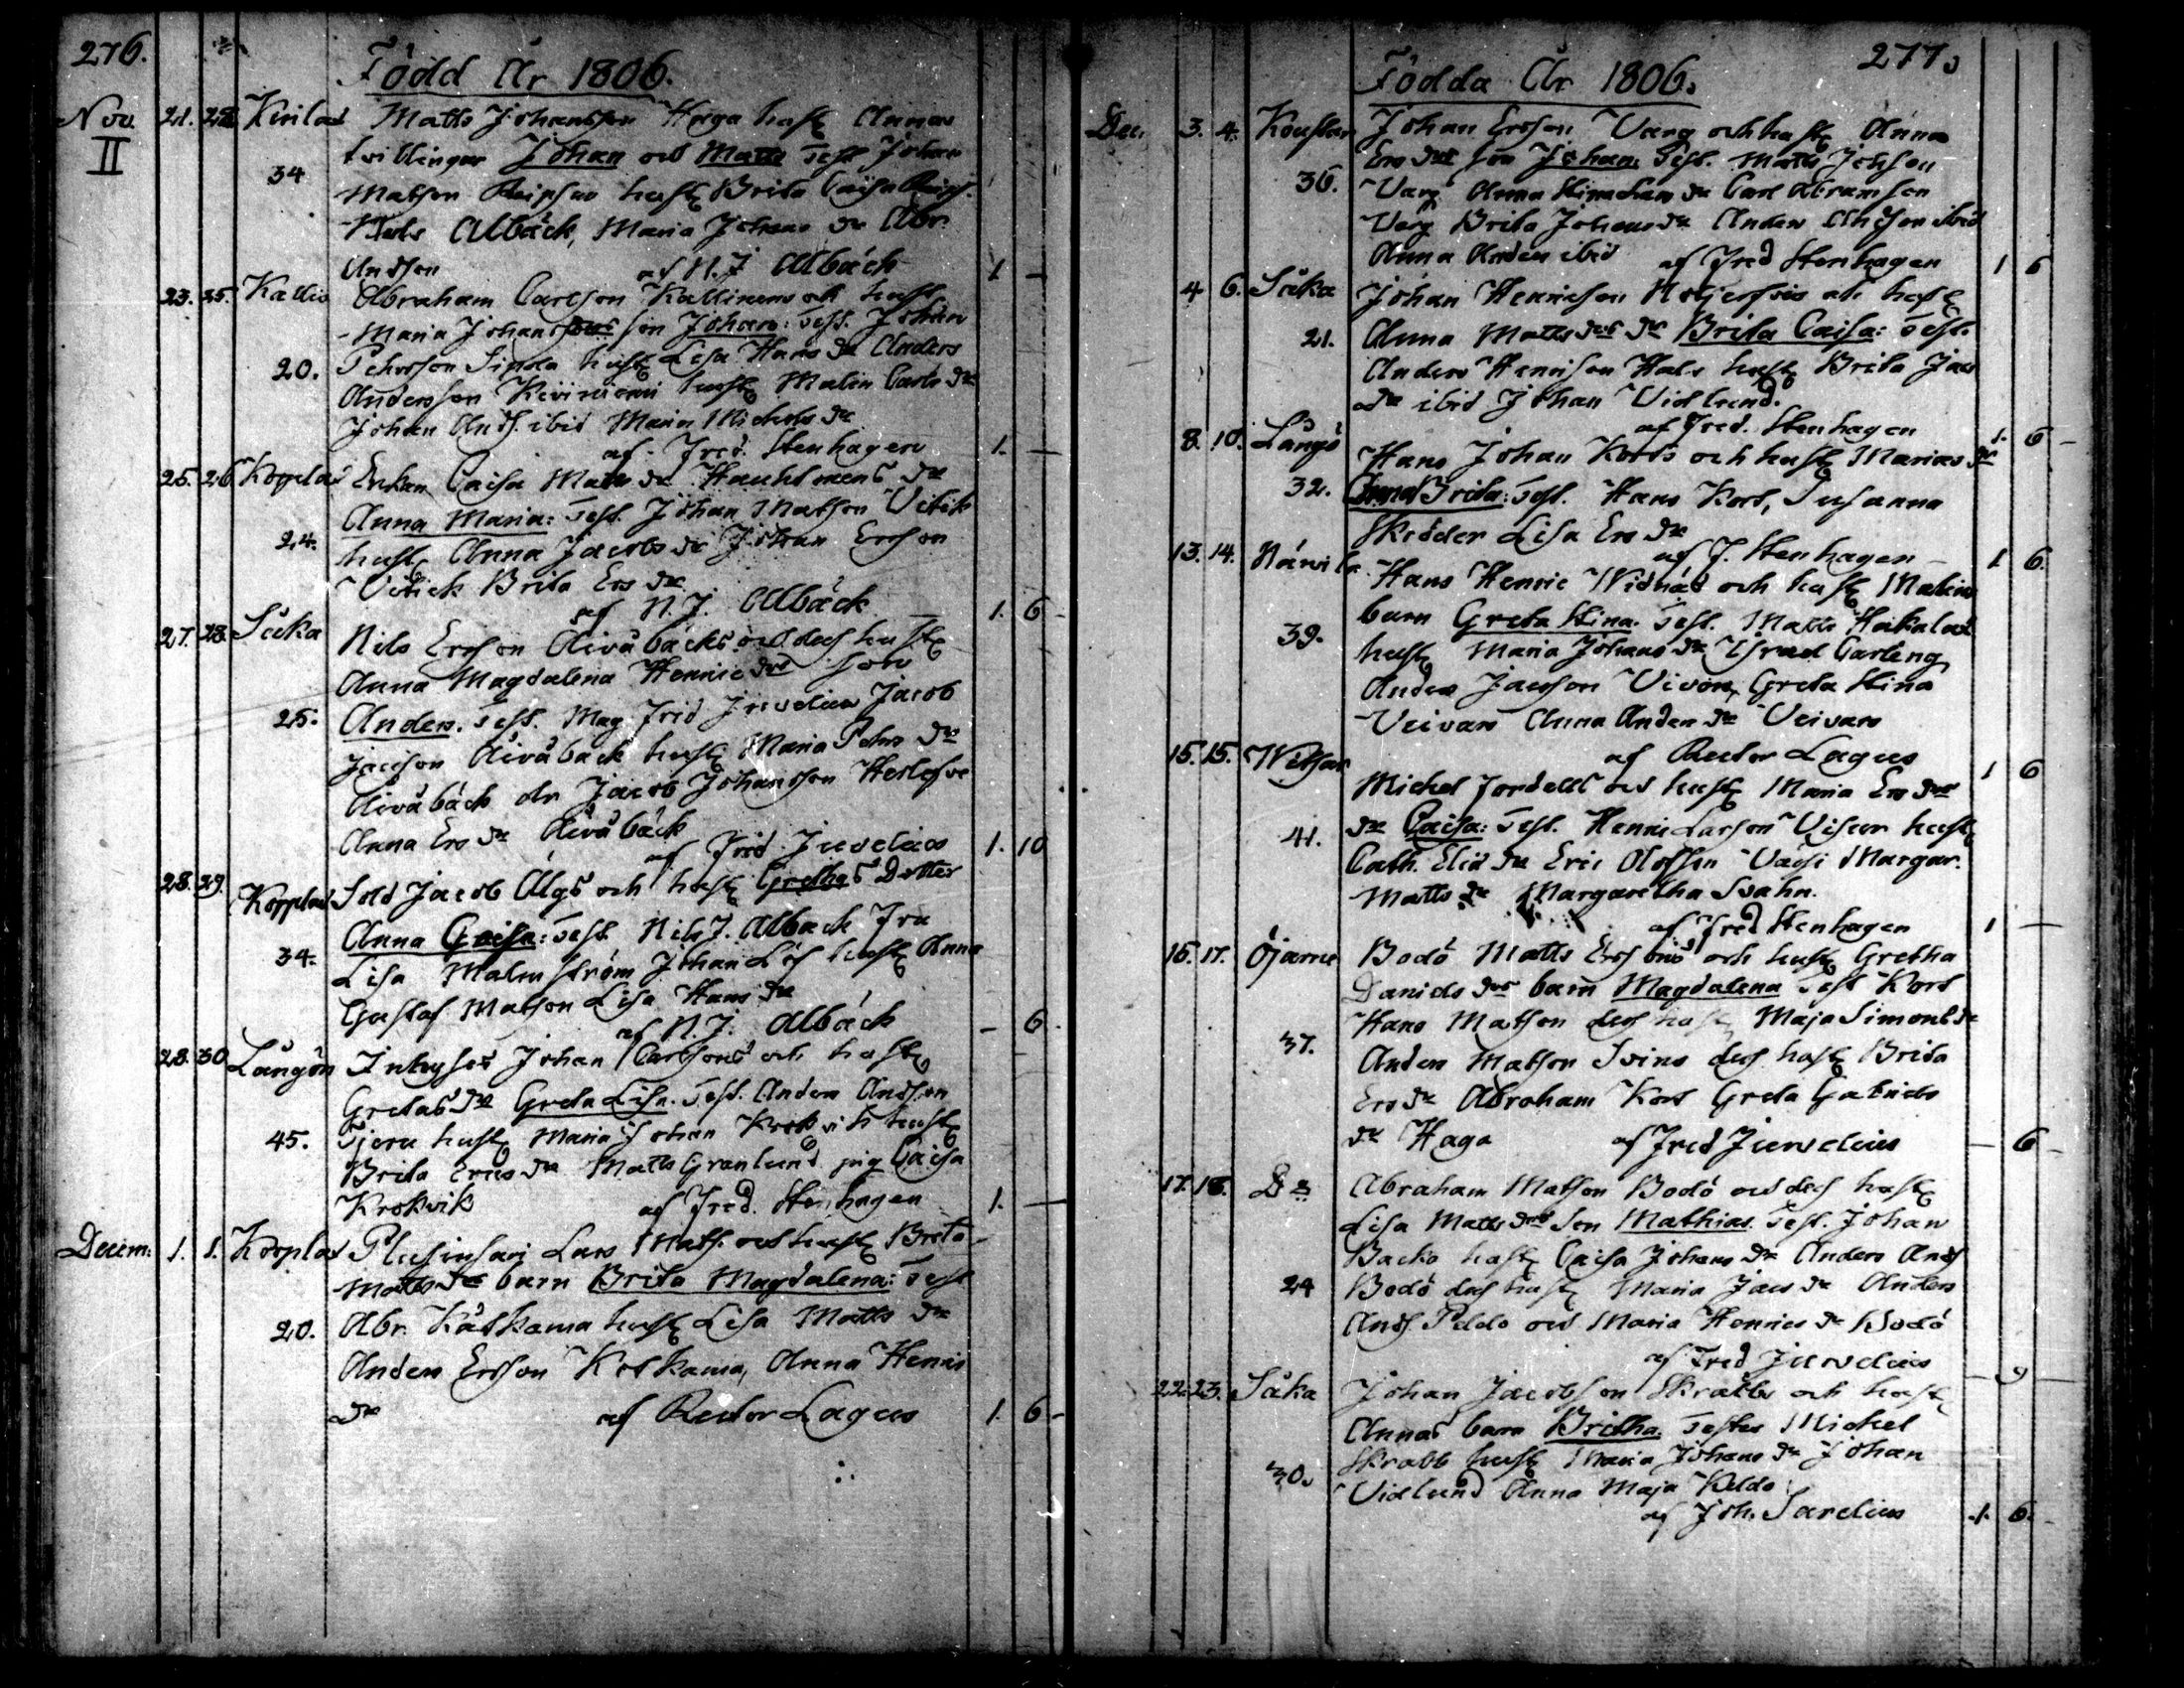 276.
Född År 1806.
Nov. 21. 23. Kirilax Matts Johansson Haga hust Annas
II tvillingar Johan och Matts Test Johan
34 Matson Reipsar hust Brita Caisa
Nils Albäck, Maria Johans dr Abr.
Andson af N. J. Albäck 1 —
23. 25. Kallis Abraham Carlson Kallinens och hust
Maria Johans son Johan: Test. Johan
20. Pehrson Sipola hust Lisa Hans dr Anders
Andersson Kiviniemi hust Malin Carls dr
Johan Ands. ibid Maria Michels dr
af Fred. Stenhagen 1. —
25. 26 Kopplax Enkan Caisa Matts dr dr
Anna Maria: Test. Johan Matson Vitick
24. hust Anna Jacobs dr Johan Erson
Vitick Brita Ers dr
af N. J. Albäck 1. 6
27. 28. Såka Nils Erson Åivåbäcks och des hust
Anna Magdalena Henric drs son
25. Anders. Test. Mag Frid Juvelius Jacob
Jacson Åivåbäck hust Maria Pehrs dr
Åivåbäck dr Jacob Johansson
Anna Ers dr Åivåbäck
af Frid Juvelius 1. 10
28. 29. Kopplax Sold Jacob Älgs och hust Grethas Dotter
Anna Caisa: Test. Nils J. Albäck Fru
34. Lisa Malmström Johan hust Anna
Gustaf Matson Lisa Hans dr
af N. J. Albäck — 6
28. 30 Långön Inhyses Johan Carlsons och hust
Gretas dr Greta Lisa. Test. Anders Andson
45. hust Maria Johan Krokvik hust
Brita Erics dr Matts Granlund pig Caisa
Krokvik af Fred. Stenhagen 1. —
Decem: 1. 1. Kopplax Lars Mats. och hust Brita
Matts dr barn Brita Magdalena: Test
20. Abr. Kåtkama hust Lisa Matts dr
Anders Erson Kotkama, Anna Henric
dr af Rector Lagus 1. 6 -
277.
Födda År 1806.
Dec. 3. 4. Johan Erson Varg och hust Anna
Ers drs son Johan: Test. Matts Johson
36. Varg Anna Stina dr Carl Abramson
Varg Brita Johans dr Anders Andson ibid
Anna Anders ibid af Fred Stenhagen 1 6
4 6. Såka Johan Henricson och hust
21. Anna Matts drs dr Brita Caisa: Test.
Anders Henrison Hals hust Brita Jacs
dr ibid Johan Vidlund.
af Fred. Stenhagen 1. 6 -
8. 10. Långö Hans Johan Korts och hust Marias dr
32. Anna Brita: Test. Hans Kort, Susanna
Skröder Lisa Ers dr
af J. Stenhagen 1 6.
13. 14. Hans Henric Widnäs och hust Malins
barn Greta Stina. Test. Matts Hakalax
39. hust Maria Johans dr Israel Carleng
Anders Jacson Greta Stina
Veivars Anna Anders dr Veivars
af Rector Lagus 1 6
15. 15. Michel Fordell och hust Maria Ers drs
41. dr Caisa: Test. Henric Larson hust
Cath. Elis dr Eric Olofson Margar.
Matts dr Margaretha Svahn.
af Fred Stenhagen 1 —
16. 17. Öjarne Bodö Matts Ersons och hust Gretha
Daniels drs barn Magdalena Test Kort
37. Hans Matson des hust Maja Simons dr
Anders Matson Svins des hust Brita
Ers dr Abraham Kort Greta Gabriels
dr Haga af Fred Juvelius — 6 -
17. 18. Do Abraham Matson Bodö och des hust
Lisa Matts drs son Mathias. Test. Johan
Backo hust Caisa Johans dr Anders Ands
24 Bodö des hust Maria Jacs dr Anders
Ands. Peldo och Maria Henrics dr Bodö
af Fred Juvelius — 9 —
22. 23. Såka Johan Jacobson Skrabbs och hust
Annas barn Britha. Testes Michel
30. Skrabb hust Maria Johans dr Johan
Vidlund Anna Maja Keldo
af Joh. Sarelius 1. 6.